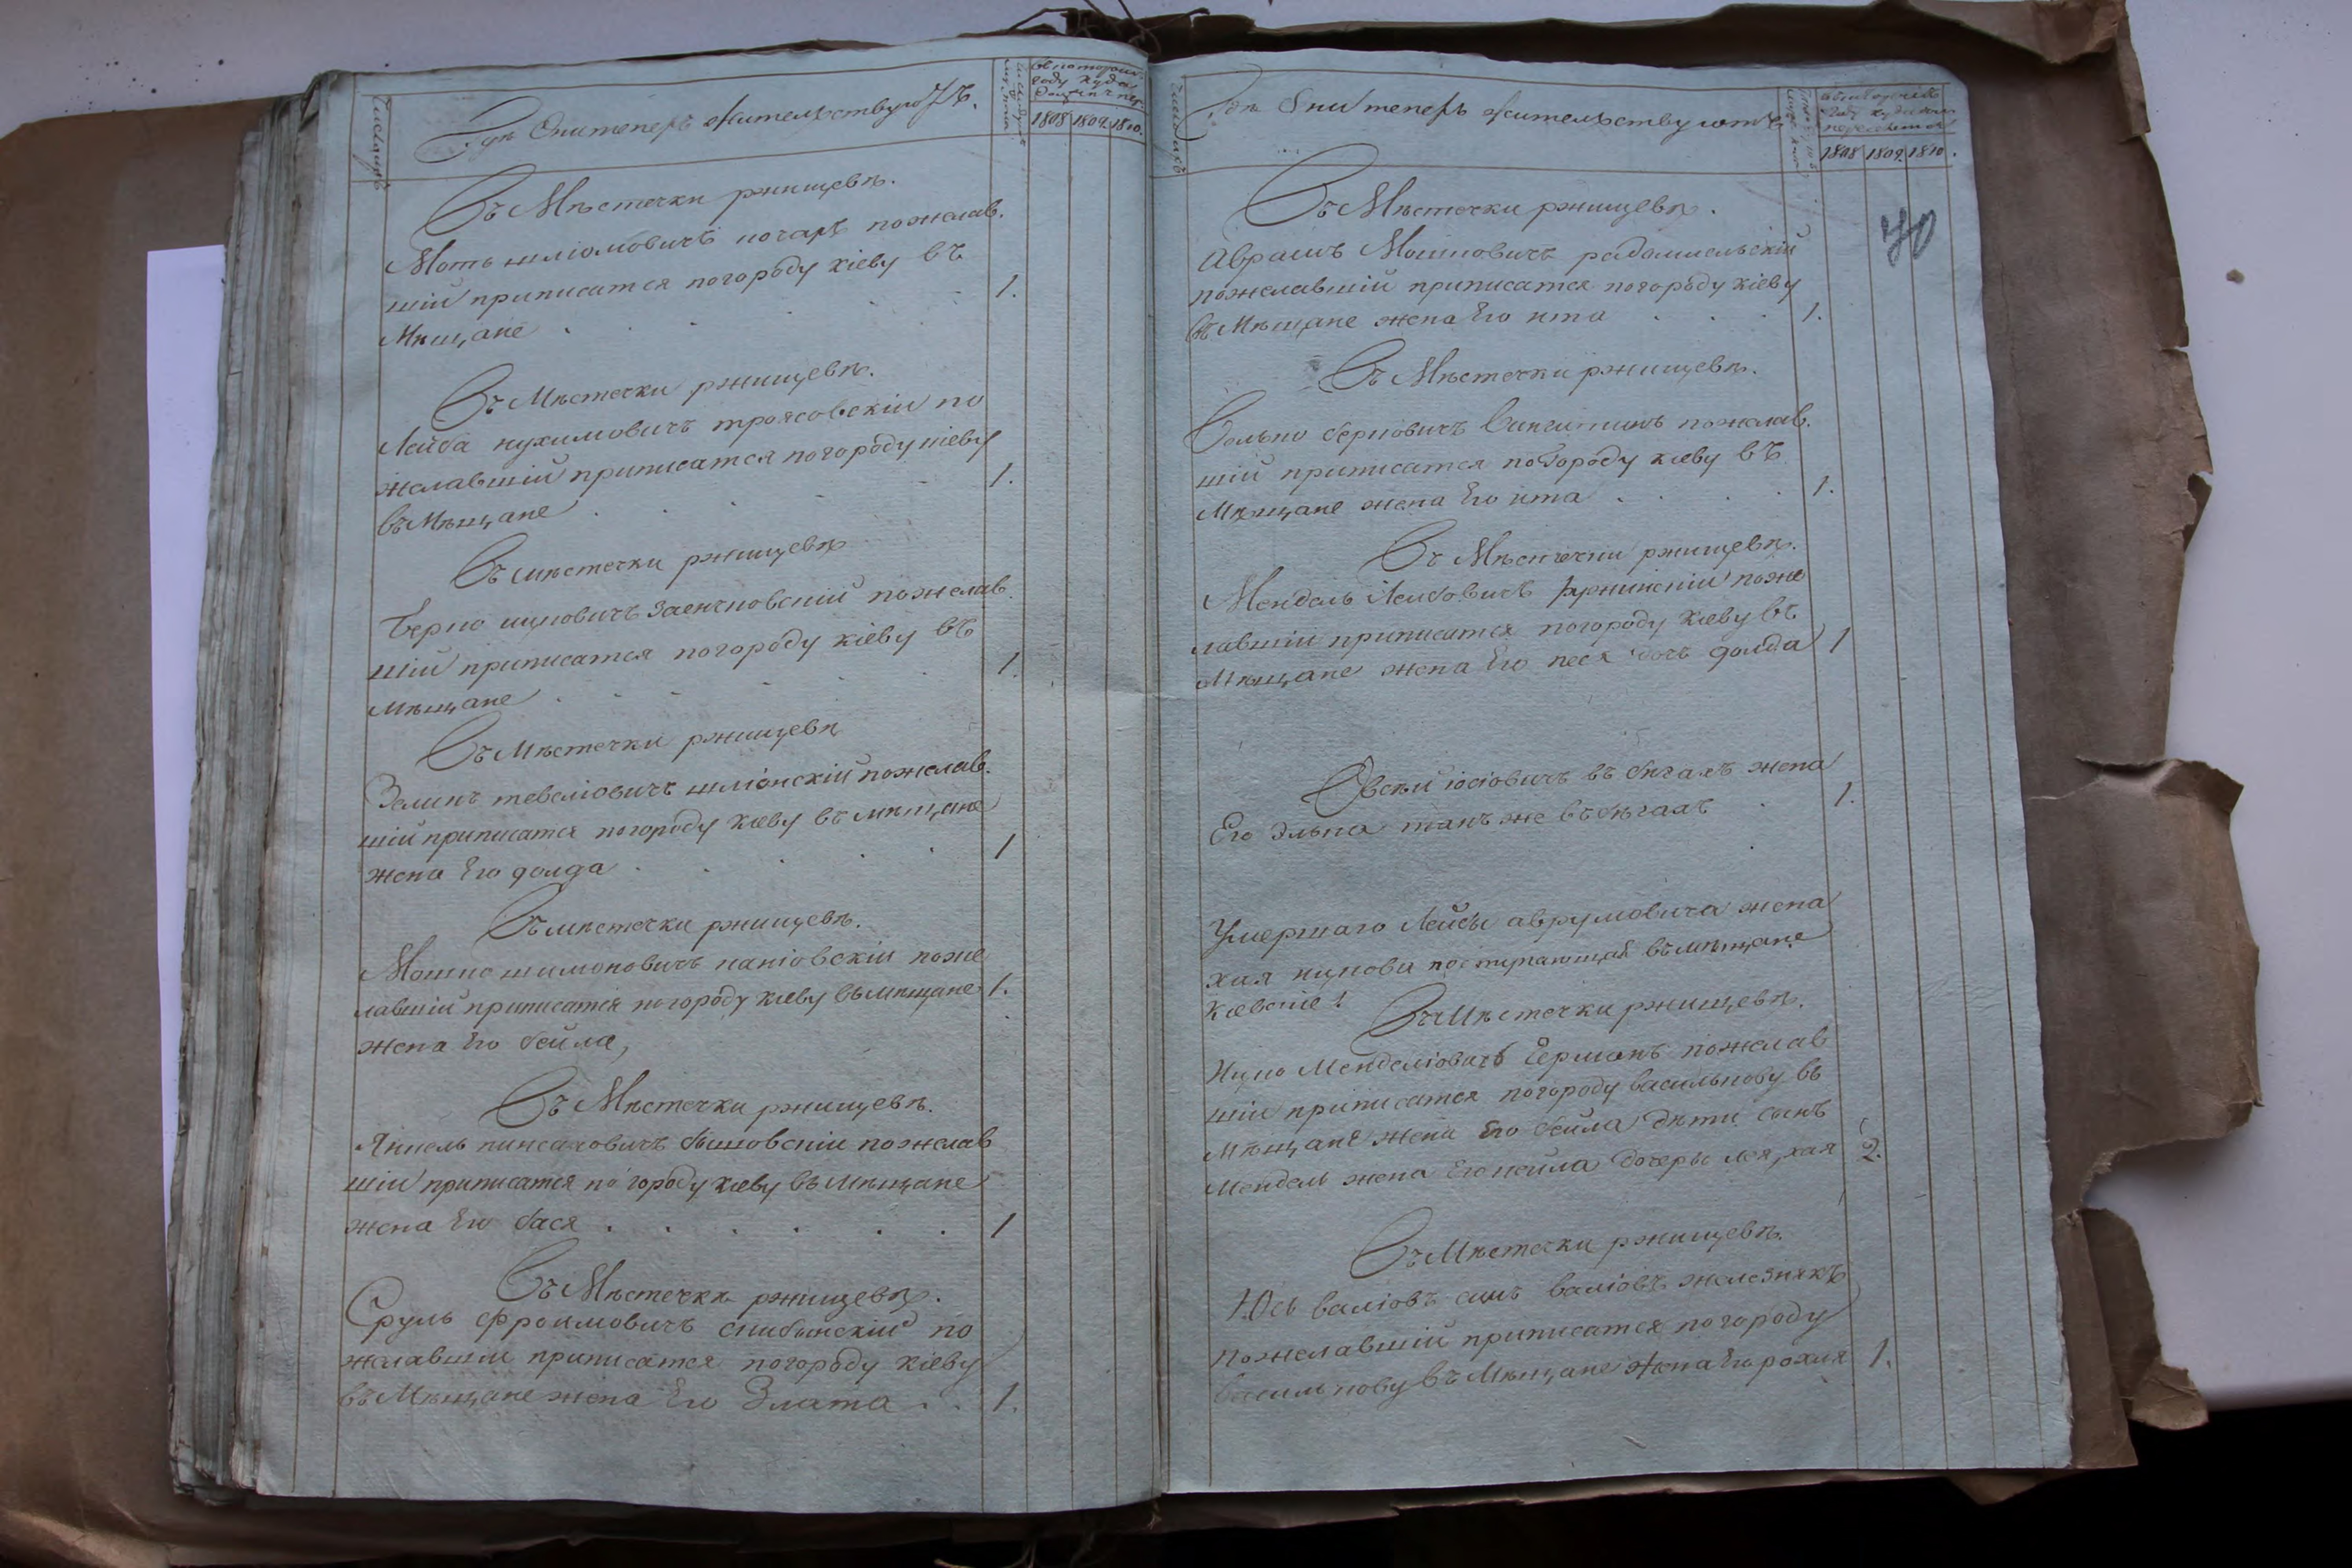 Где Они теперь жительствуютъ.
1808 1809 1810.
Въ Мѣстечки ржищевѣ.
Мотъ шліомовичъ почаръ пожелав.
шій приписатся погороду кіеву въ
Мѣщане 1.
Въ Мѣстечки ржищевѣ.
Лейба нухимовичъ троясовскій по
желавшій приписатся погороду кіеву
въ Мѣщане 1.
Въ мѣстечки ржищевѣ
Берко ицковичъ пожелав.
шій приписатся погороду кіеву въ
мѣщане 1.
Въ Мѣстечки ржищевѣ
Зелигъ тевеліовичъ пожелав.
шій приписатся погороду кіеву въ мѣщане
жена Его голда 1
Въ мѣстечки ржищевѣ.
Мошко шимоновичъ поже
лавшій приписатся погороду кіеву въ мѣщане 1.
жена Его бейла,
Въ Мѣстечки ржищевѣ.
Янкель пинсаховичъ бышовскій пожелав
шій приписатся погороду кіеву въ мѣщане
жена Его бася 1
Въ Мѣстечки ржищевѣ.
Сруль фроимовичъ по
желавшій приписатся погороду кіеву
въ Мѣщане жена Его Злата 1.
Где Они теперь жительствуютъ
1808 1809. 1810.
40
Въ Мѣстечки ржищевѣ.
Аврамъ Мошковичъ радомисльскій
пожелавшій приписатся погороду кіеву
въ Мѣщане жена Его ита 1.
Въ Мѣстечки ржищевѣ.
Волько берковичъ пожелав.
шій приписатся погороду киеву въ
Мѣщане жена Его ита 1.
Въ Мѣстечки ржищевѣ.
Мендель Лейбовичъ ружинскій поже
лавшій приписатся погороду кіеву въ
Мѣщане жена Его песя дочь голда 1
Овсѣй іосіовичъ въ бѣгахъ жена
Его Элька такъ же въ бѣгахъ 1.
Умершаго Лейбы аврумовича жена
хая ицкова поступающая въ мѣщане
Киевскіе 1
Въ Мѣстечки ржищевѣ.
Ицко Менделіовичъ Германъ пожелав
шій приписатся погороду василькову въ
мѣщане жена Его бейла дѣти сынъ
мендель жена Его кейла дочеры лея, хая 2.
Въ Мѣстечки ржищевѣ.
Юсь валіовъ сынъ валіовъ железнякъ
пожелавшій приписатся погороду
василькову въ мѣщане жена Его рохля 1.